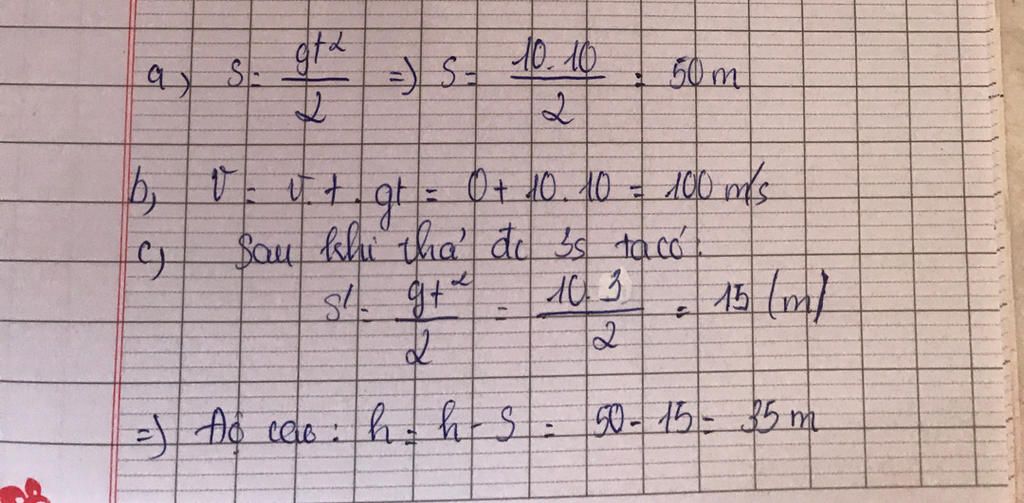 a, S = gt²/2 => S = 10.10/2 = 50 m
b, v = v. + gt = 0 + 10.10 = 100 m/s
c, Sau khi thả đc 3s ta có:
S' = gt²/2 = 10.3/2 = 15 (m)
=> Độ cao: h = h - S = 50 - 15 = 35 m